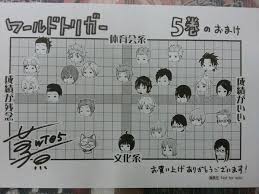 ワールドトリガー
5巻のおまけ
体育会系
成績が残念
成績がいい
WT05
文化系
お買い上げありがとうございます!